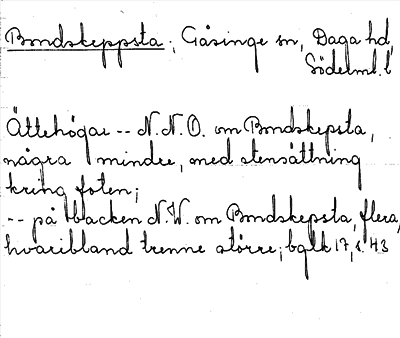 Bondskeppsta; Gåsinge sn, Daga hd,
Södelml. l
Ättehögar -- N.N.O. om Bondskepsta,
några mindre, med stensättning
kring foten;
-- på Backen N.W. om Bondskepsta, flera,
hvaribland trenne större; bglk 17, s. 43